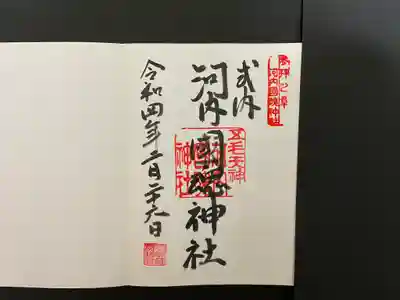 式内
河内國魂神社
五毛天神
令和四年二月二十六日